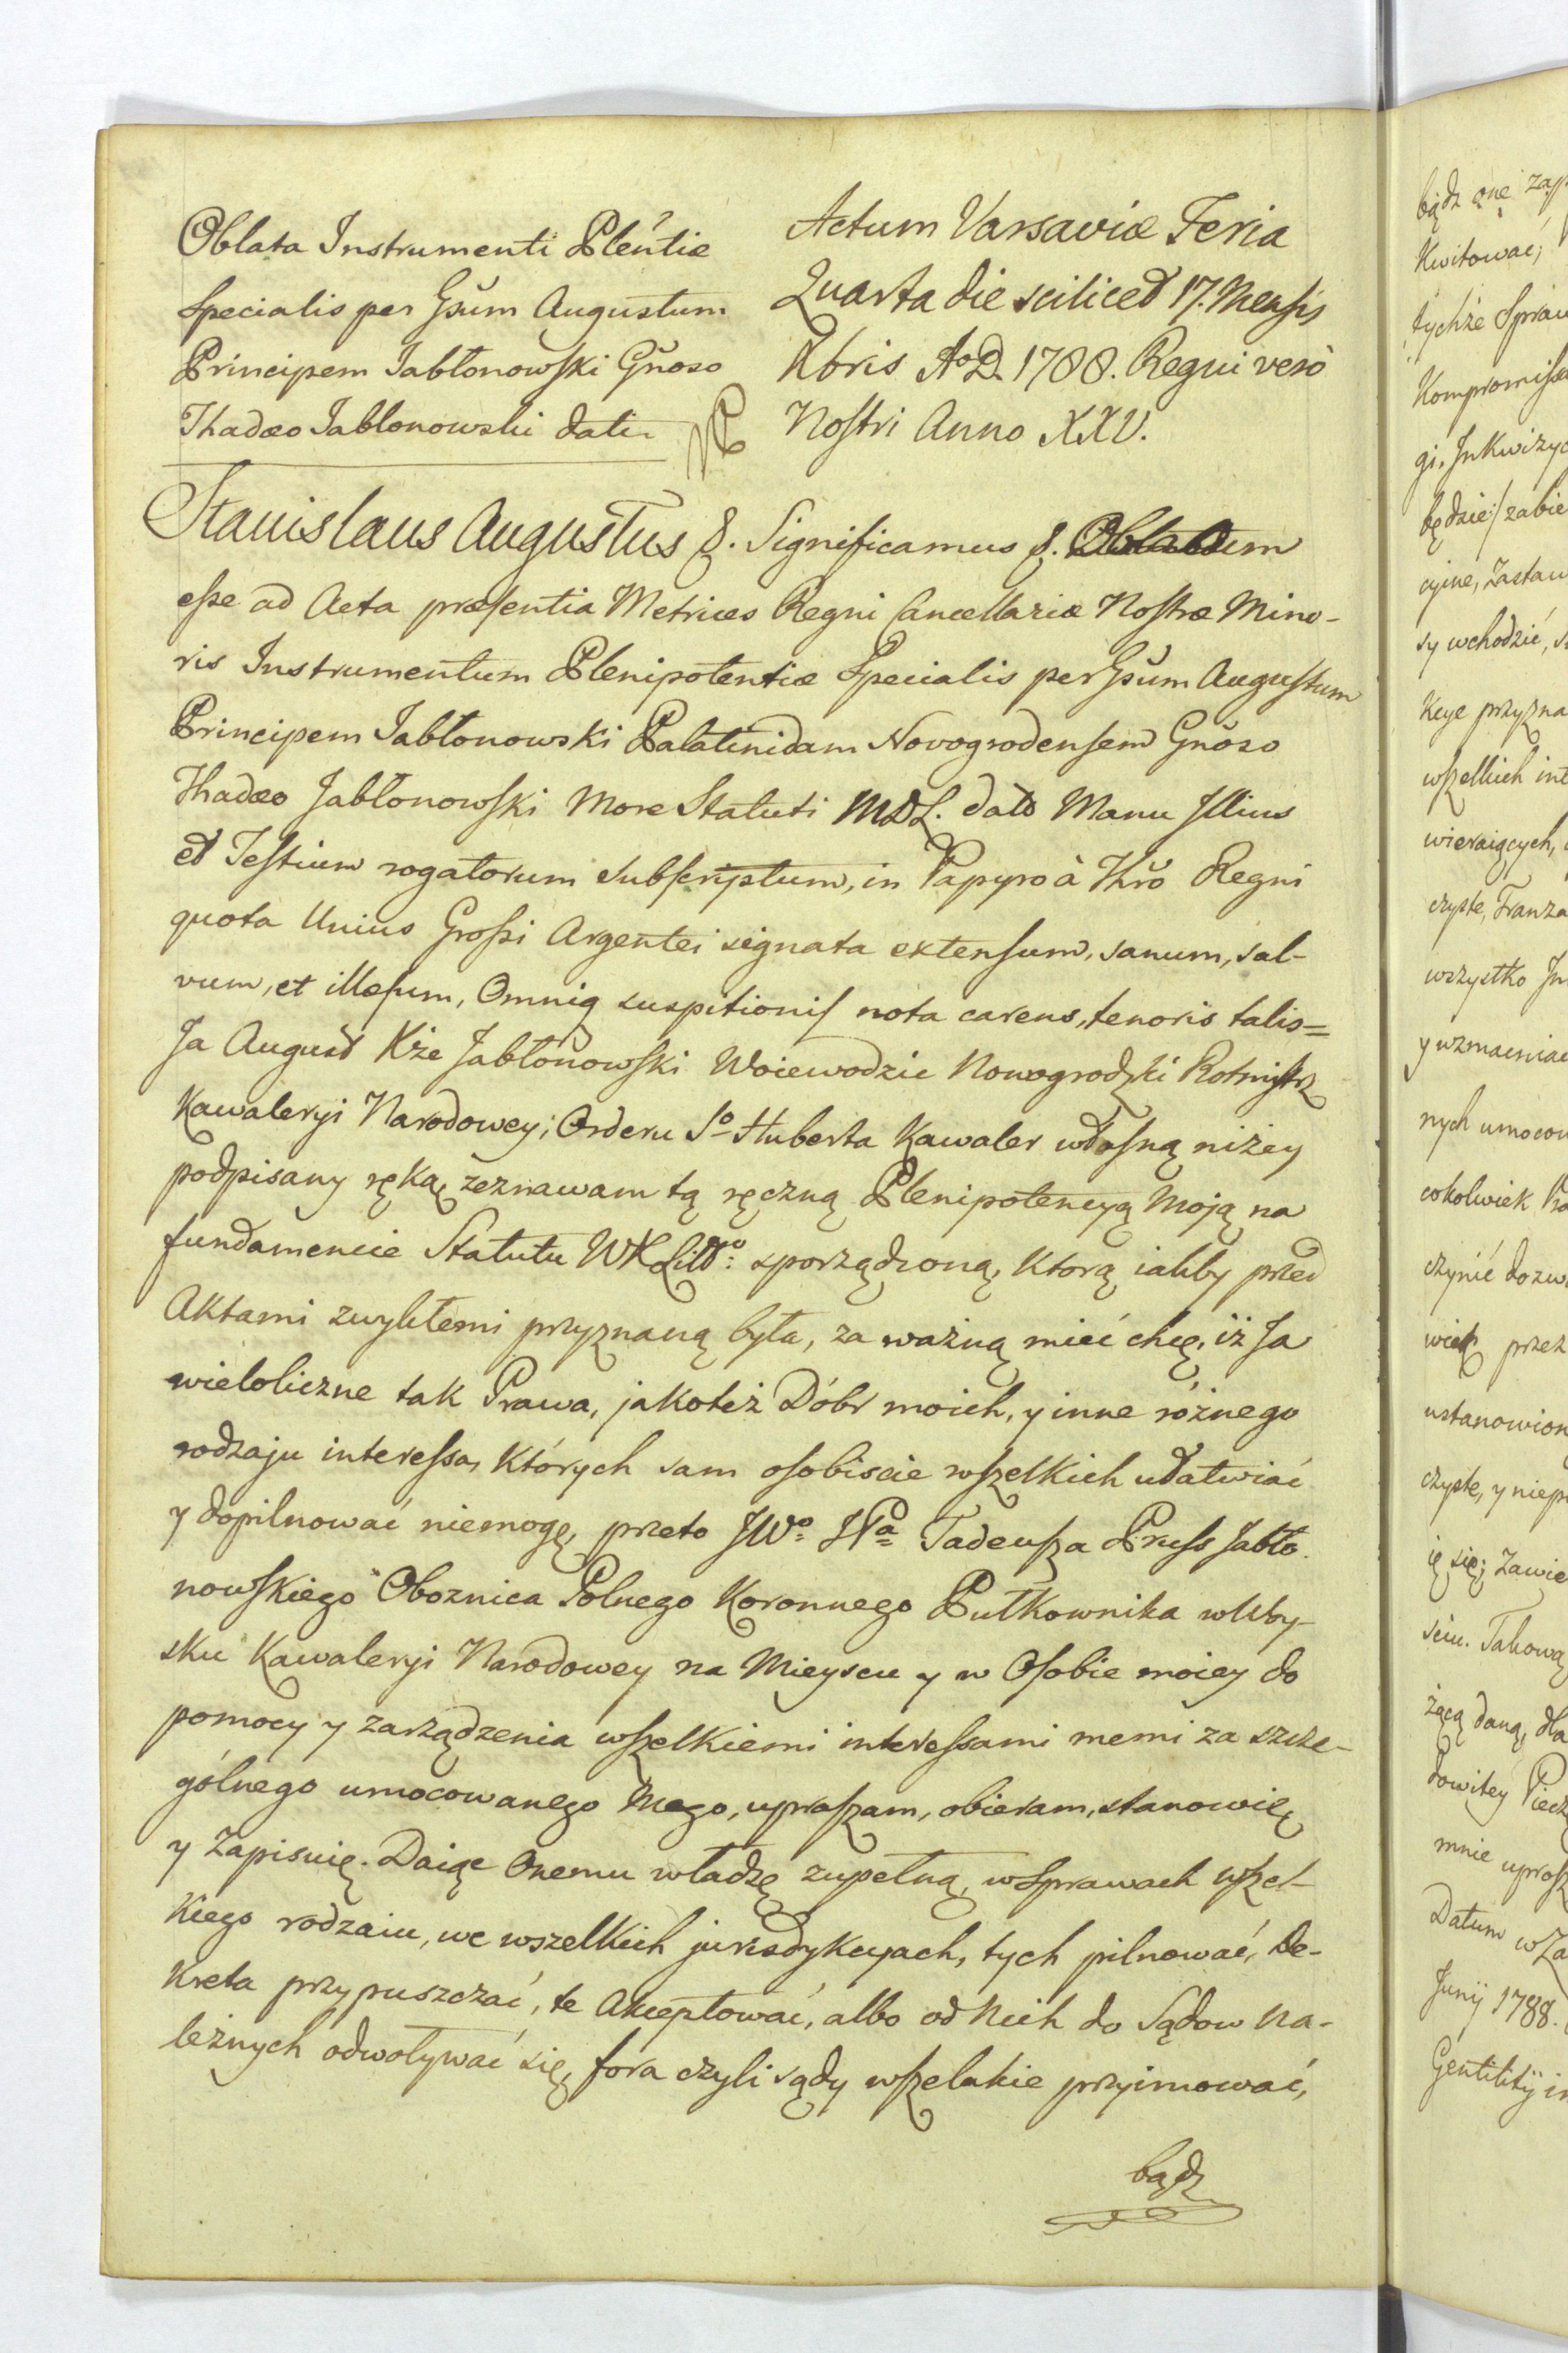 Oblata Instrumenti Plẽntiæ
Specialis per Gsũm Augustum
Principem Jabłonowſki Gñoso
Thadæo Jablonowski dati
Actum Varsaviæ Feria
Quarta die scilicet 17. Mensis
Xbris Aº D. 1788. Regni verò
Noſtri Anno XXV.
Stanislaus Augustus &. Significamus &. Oblatum
eſse ad Acta præſentia Metrices Regni Cancellariæ Noſtræ Mino-
ris Instrumentum Plenipotentiæ Specialis per Gsũm Auguſtum
Principem Jabłonowski Palatinidam Novogrodenſem Gñoso
Thadæo Jabłonowſki More Statuti MDL. dato Manu Jllius
et Teſtium rogatorum subſcriptum, in Papyro à Thr̃o Regni
quota Unius Groſsi Argentei signata extenſum, sanum, sal-
vum, et illæſum, Omniq suspitioniſ nota carens, tenoris talis=
Ja August Xże Jabłonowſki Woiewodzic Nowogrodzki Rotmiſtrz
Kawaleryi Narodowey; Orderu Sº Huberta Kawaler właſną niżey
podpisany ręką, zeznawam tą ręczną Plenipotencyą Moją na
fundamencie Statutu WXLittº: sporządzoną, Ktorą iakby przed
Aktami zwykłemi przyznaną była, za ważną mieć chcę, iż Ja
wieloliczne tak Prawa, jakoteż Dóbr moich, y inne różnego
rodzaju intereſsa, Których sam oſobiscie wſzelkich ułatwiać
y dopilnować niemogę, przeto JWº: JPª Tadeuſza Pruſs Jabło-
nowſkiego Oboznica Polnego Koronnego Pułkownika wWoy-
sku Kawaleryi Narodowey na Mieyscu y w Oſobie moiey do
pomocy y zarządzenia wſzelkiemi intereſsami memi za szcze-
gólnego umocowanego Mego, upraſzam, obieram, stanowię
y Zapisuię. Daiąc Onemu władzę zupełną, wSprawach wſzel-
Kiego rodzaiu, we wszelkich jurisdykcyach, tych pilnować, De-
kreta przypuszczać, te Akceptować, albo od Nich do Sądow Na-
leżnych odwoływać się, fora czyli sądy wſzelakie przyimować,
bądz
bądz onę
Kwitować;
tychże Spraw
Kompromiſsa
gi, Jnkwizyc
będzie/ zabie
cyine, Zastaw
sy wchodzić,
Kcye przyzna
wſzelkich int
wieraiących,
czyste, Tranza
wszystko Jn
y wzmacniac
nych umocow
cokolwiek
czynić dozw
więk przez
ustanowion
czyste, y niep
ię się; Zawie
sciu. Takową
żącą daną, dla
dowitey Piecz
mnie uproſz
Datum w Za
Junij 1788.
Gentilitij in